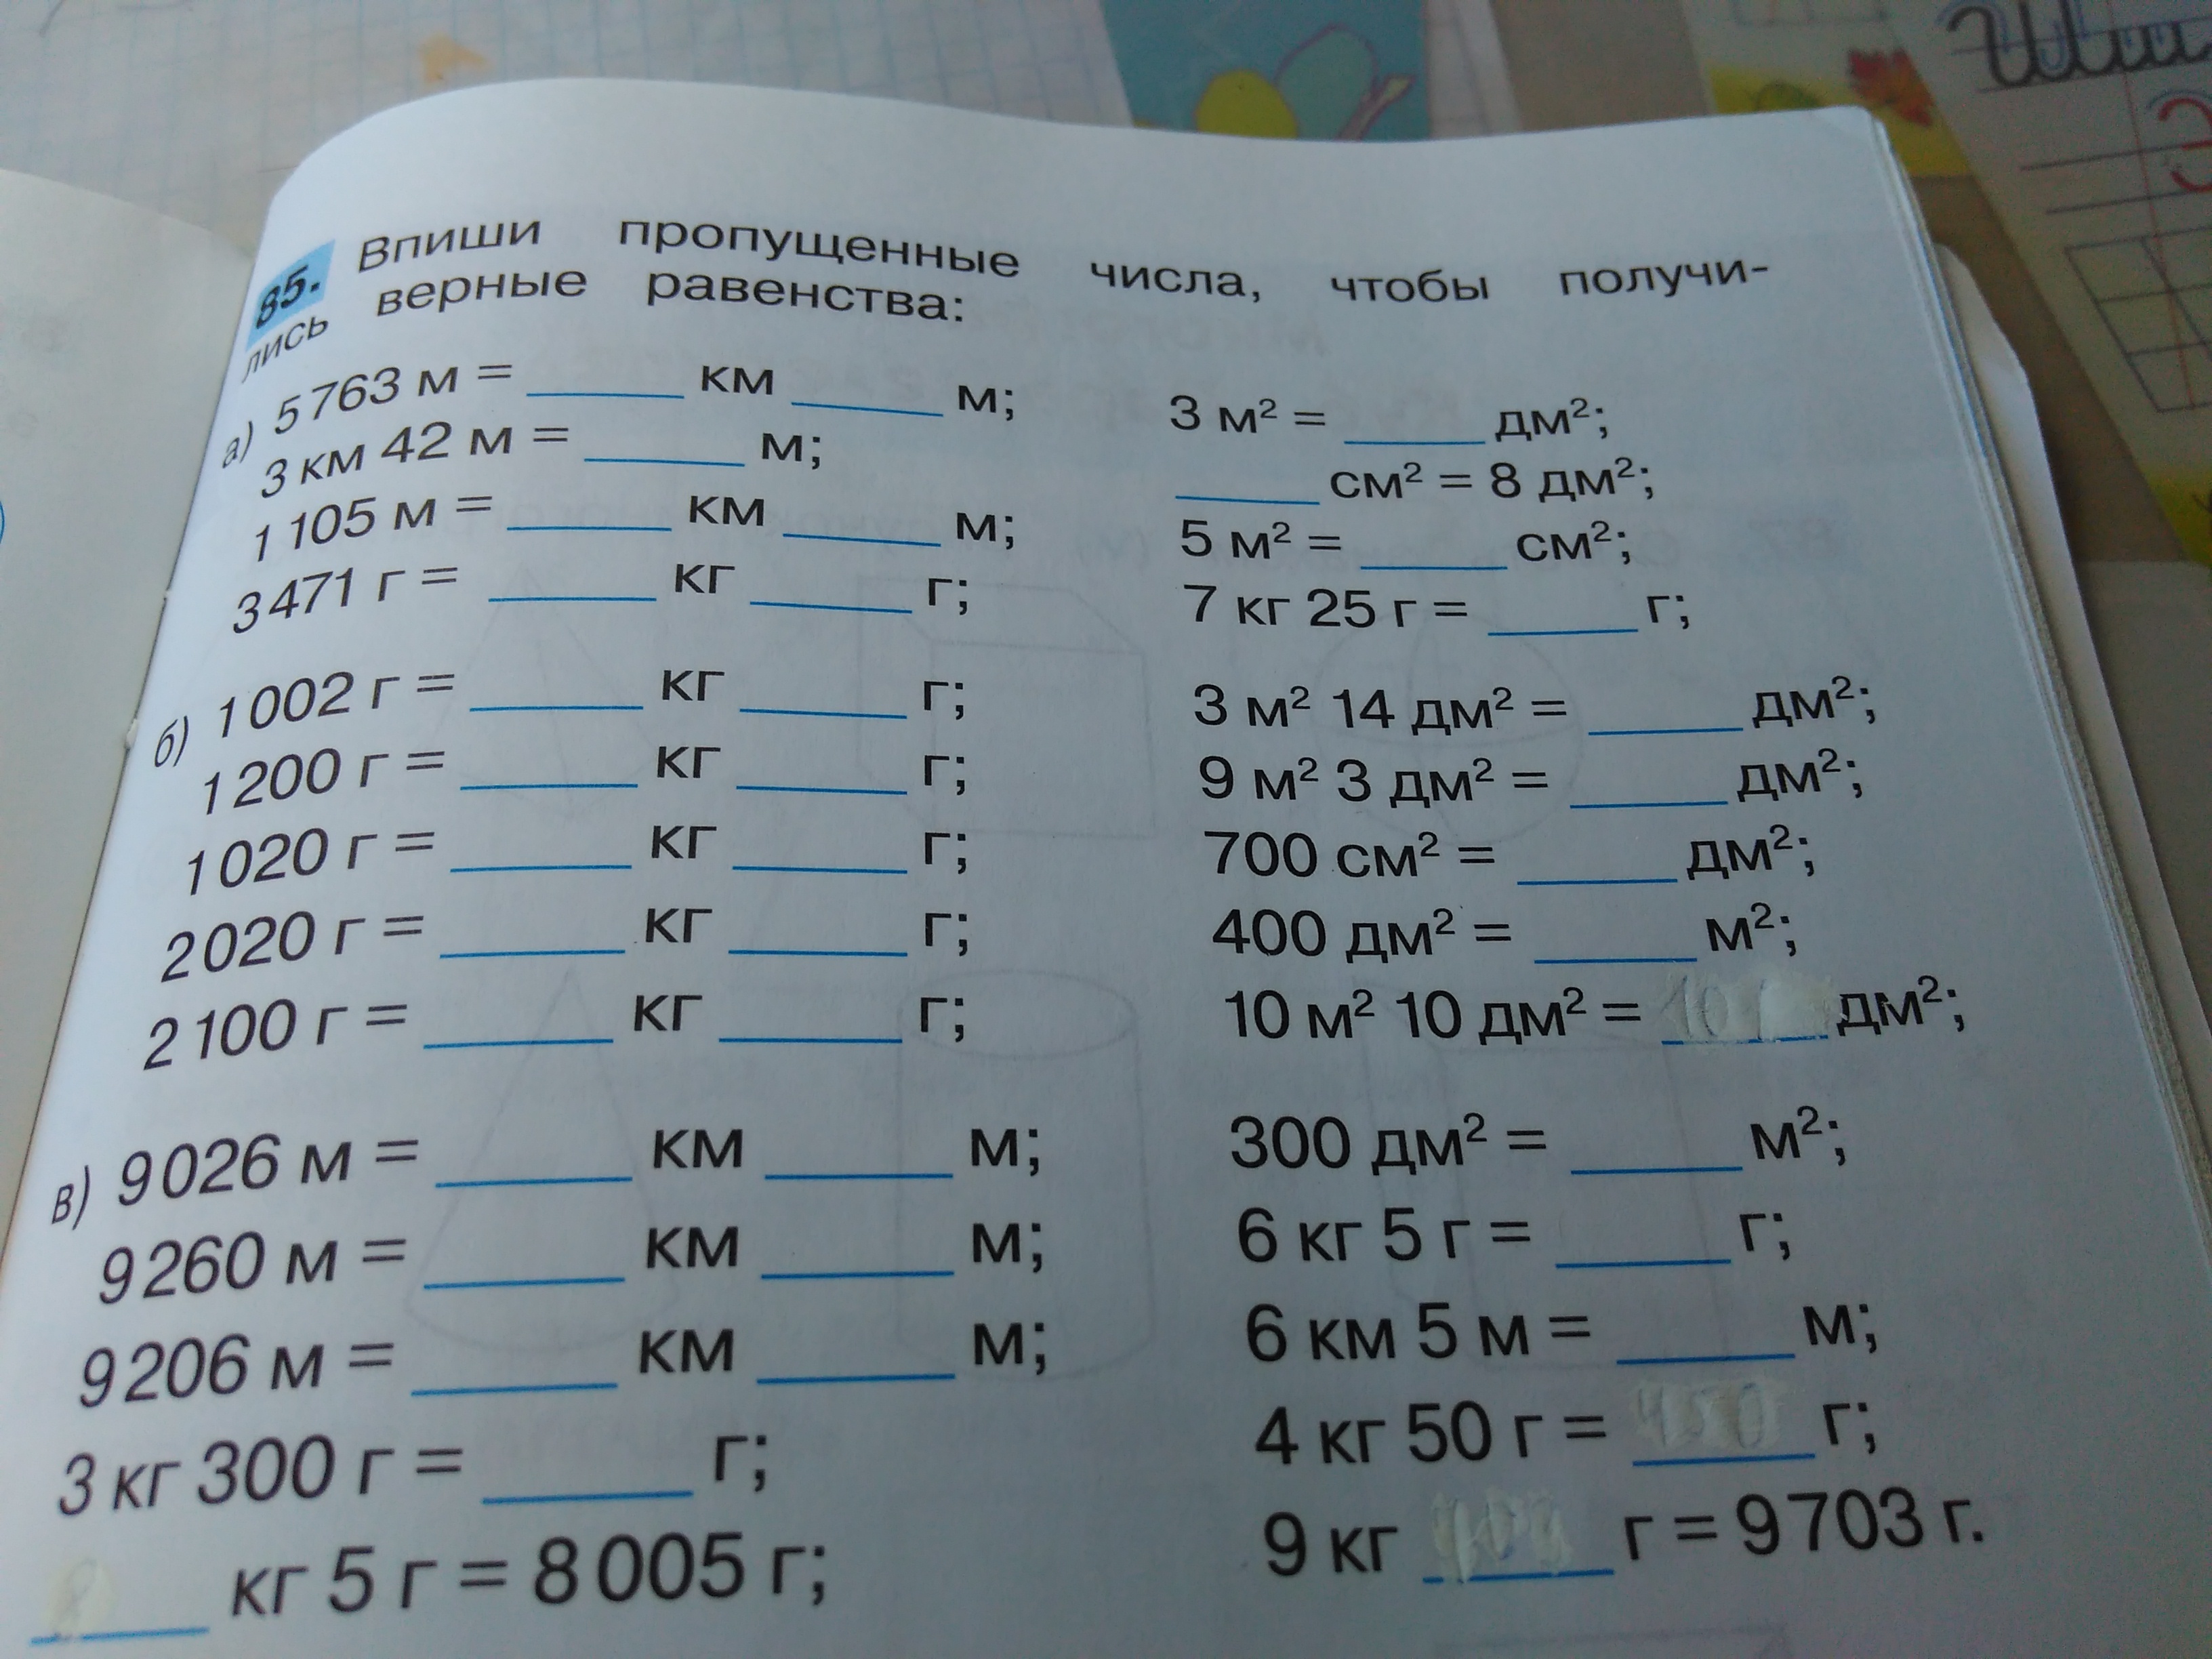 85. Впиши пропущенные числа, чтобы получи-
лись верные равенства:
а) 5 763 м = ______ км ______ м;
3 км 42 м = ______ м;
1 105 м = ______ км ______ м;
3 471 г = ______ кг ______ г;
3 м² = ______ дм²;
______ см² = 8 дм²;
5 м² = ______ см²;
7 кг 25 г = ______ г;
б) 1 002 г = ______ кг ______ г;
1 200 г = ______ кг ______ г;
1 020 г = ______ кг ______ г;
2 020 г = ______ кг ______ г;
2 100 г = ______ кг ______ г;
3 м² 14 дм² = ______ дм²;
9 м² 3 дм² = ______ дм²;
700 см² = ______ дм²;
400 дм² = ______ м²;
10 м² 10 дм² = ______ дм²;
в) 9 026 м = ______ км ______ м;
9 260 м = ______ км ______ м;
9 206 м = ______ км ______ м;
3 кг 300 г = ______ г;
______ кг 5 г = 8 005 г;
300 дм² = ______ м²;
6 кг 5 г = ______ г;
6 км 5 м = ______ м;
4 кг 50 г = ______ г;
9 кг ______ г = 9 703 г.